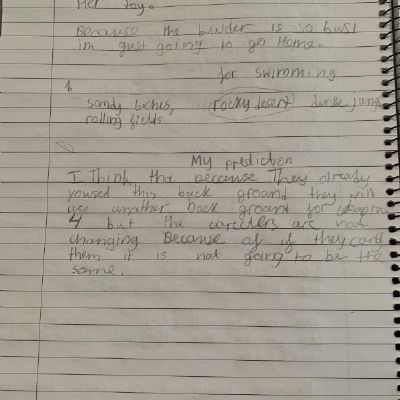 Her toy.
Because the builder is so busi
im gust going to go Home.
for swimming
1.
sandy biches, rocky desert dense jung
rolling fields
My prediction
I Think tha because They already
yoused this back ground they will
use another back ground for
4 but the carecters are not
changing Because of if they cang
them it is not going to be the
same.